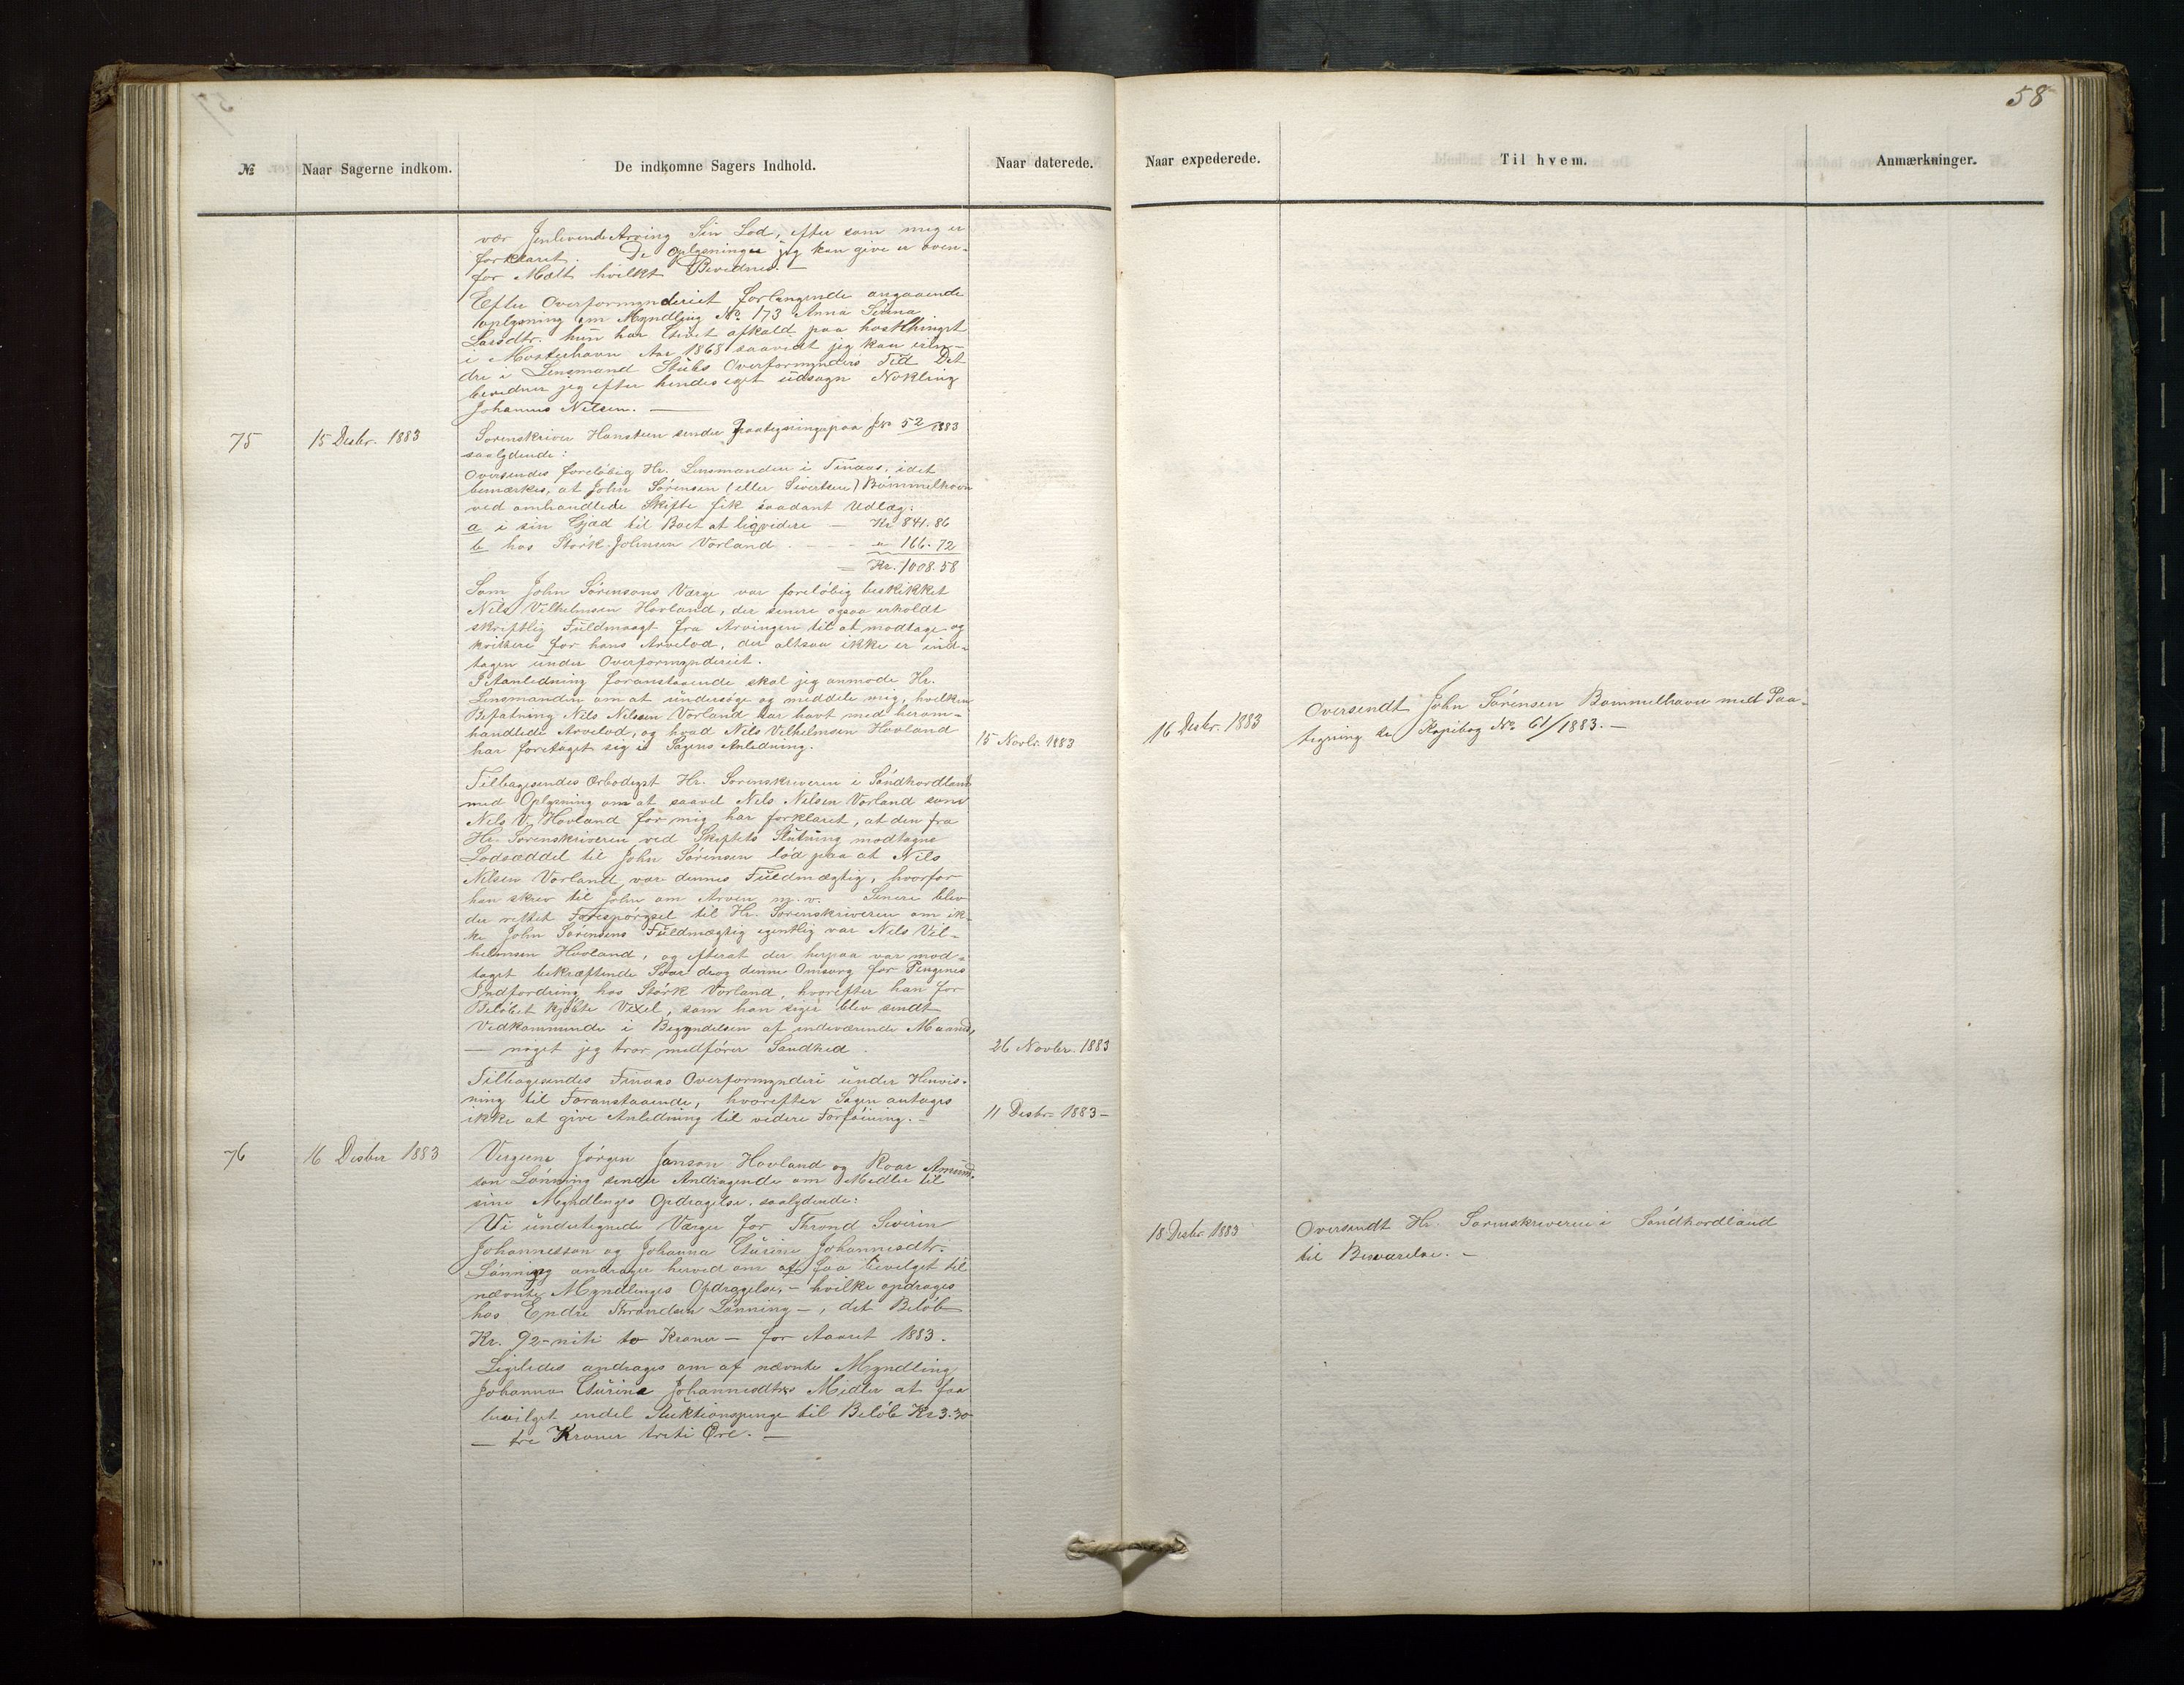 58
№
Naar Sagerne indkom.
De indkomne Sagers Indhold.
Naar daterede.
Naar expederede.
Til hvem.
Anmærkninger.
vær Jenlevende Arving Sin Lod, efter som mig er
forklaret. De Oplysninger jeg kan give er oven-
for Mælt hvilket Bevidnes. —
Efter Overformynderiet forlangende angaaende
oplysning om Myndling No 173 Anna Serina
Larsdtr. hun har Givet afkald paa hostthinget
i Mosterhavn Aar 1868 saavidt jeg kan erin-
dre i Lensmand Stubs Overformynders Tid Det
bevidner jeg efter hendes eget udsagn Nokling
Johannes Nilsen. —
75
15 Desbr. 1883
Sorenskriver Hansteen sender Paategning paa Jr 52/1883
saalydende:
Oversendes foreløbig Hr. Lensmanden i Finaas, idet
bemærkes, at John Sørensen (eller Sivertsen) Bømmelhavn
ved omhandlede Skifte fik saadant Udlæg:
a i sin Gjæd til Boet at liqvidere — Kr 841.86
b hos Størk Johnsen Vorland . - - - " 166.72
= Kr. 1008.58
Som John Sørensens Værge var foreløbig beskikket
Nils Vilhelmsen Hovland, der senere ogsaa erholdt
skriftlig Fuldmaagt fra Arvingen til at modtage og
kvittere for hans Arvelod, der altsaa ikke er ind-
tagen under Overformynderiet.
I Anledning foranstaaende skal jeg anmode Hr.
Lensmanden om at undersøge og meddele mig, hvilken
Befatning Nils Nilsen Vorland har havt med herom-
handlede Arvelod, og hvad Nils Vilhelmsen Hovland
har foretaget sig i Sagens Anledning.
15 Novbr. 1883
16 Desbr. 1883
Oversendt John Sørensen Bømmelhavn med Paa-
tegning se Kopibog No 61/1883. —
Tilbagesendes ærbødigst Hr. Sorenskriveren i Søndhordland
med Oplysning om at saavel Nils Nilsen Vorland som
Nils V. Hovland for mig har forklaret, at den fra
Hr. Sorenskriveren ved Skiftets Slutning modtagne
Lodseddel til John Sørensen lød paa at Nils
Nilsen Vorland var dennes Fuldmægtig, hvorfor
han skrev til John om Arven m. v. Senere blev
der rettet Forespørgsel til Hr. Sorenskriveren om ik-
ke John Sørensens Fuldmægtig egentlig var Nils Vil-
helmsen Hovland, og efterat der herpaa var mod-
taget bekræftende Svar drog denne Omsorg for Pengenes
Indfordring hos Størk Vorland, hvorefter han for
Beløbet kjøbte Vexel, som han siger blev sendt
Vedkommende i Begyndelsen af indeværende Maaned,
— noget jeg tror medfører Sandhed.
26 Novbr. 1883
Tilbagesendes Finaas Overformynderi under Henvis-
ning til Foranstaaende, hvorefter Sagen antages
ikke at give Anledning til videre Forføining. —
11 Desbr. 1883 —
76
16 Desber 1883
Vergerne Jørgen Janson Hovland og Roar Amund-
sen Lønning sender Andragende om Midler til
sine Myndlinges Opdragelse, saalydende:
Vi undertegnede Værger for Thrond Severin
Johannesson og Johanna Gurine Johannesdtr.
Lønning andrager herved om at faa bevilget til
nævnte Myndlinges Opdragelse, – hvilke opdrages
hos Endre Throndsen Lønning –, det Beløb
Kr. 92 – niti to Kroner – for Aaret 1883.
Ligeledes andrages om af nævnte Myndling
Johanna Gurina Johannesdtrs Midler at faa
bevilget endel Auktionspenge til Beløb Kr 3.30
— tre Kroner treti Øre. —
18 Desbr 1883
Oversendt Hr. Sorenskriveren i Søndhordland
til Besvarelse. —